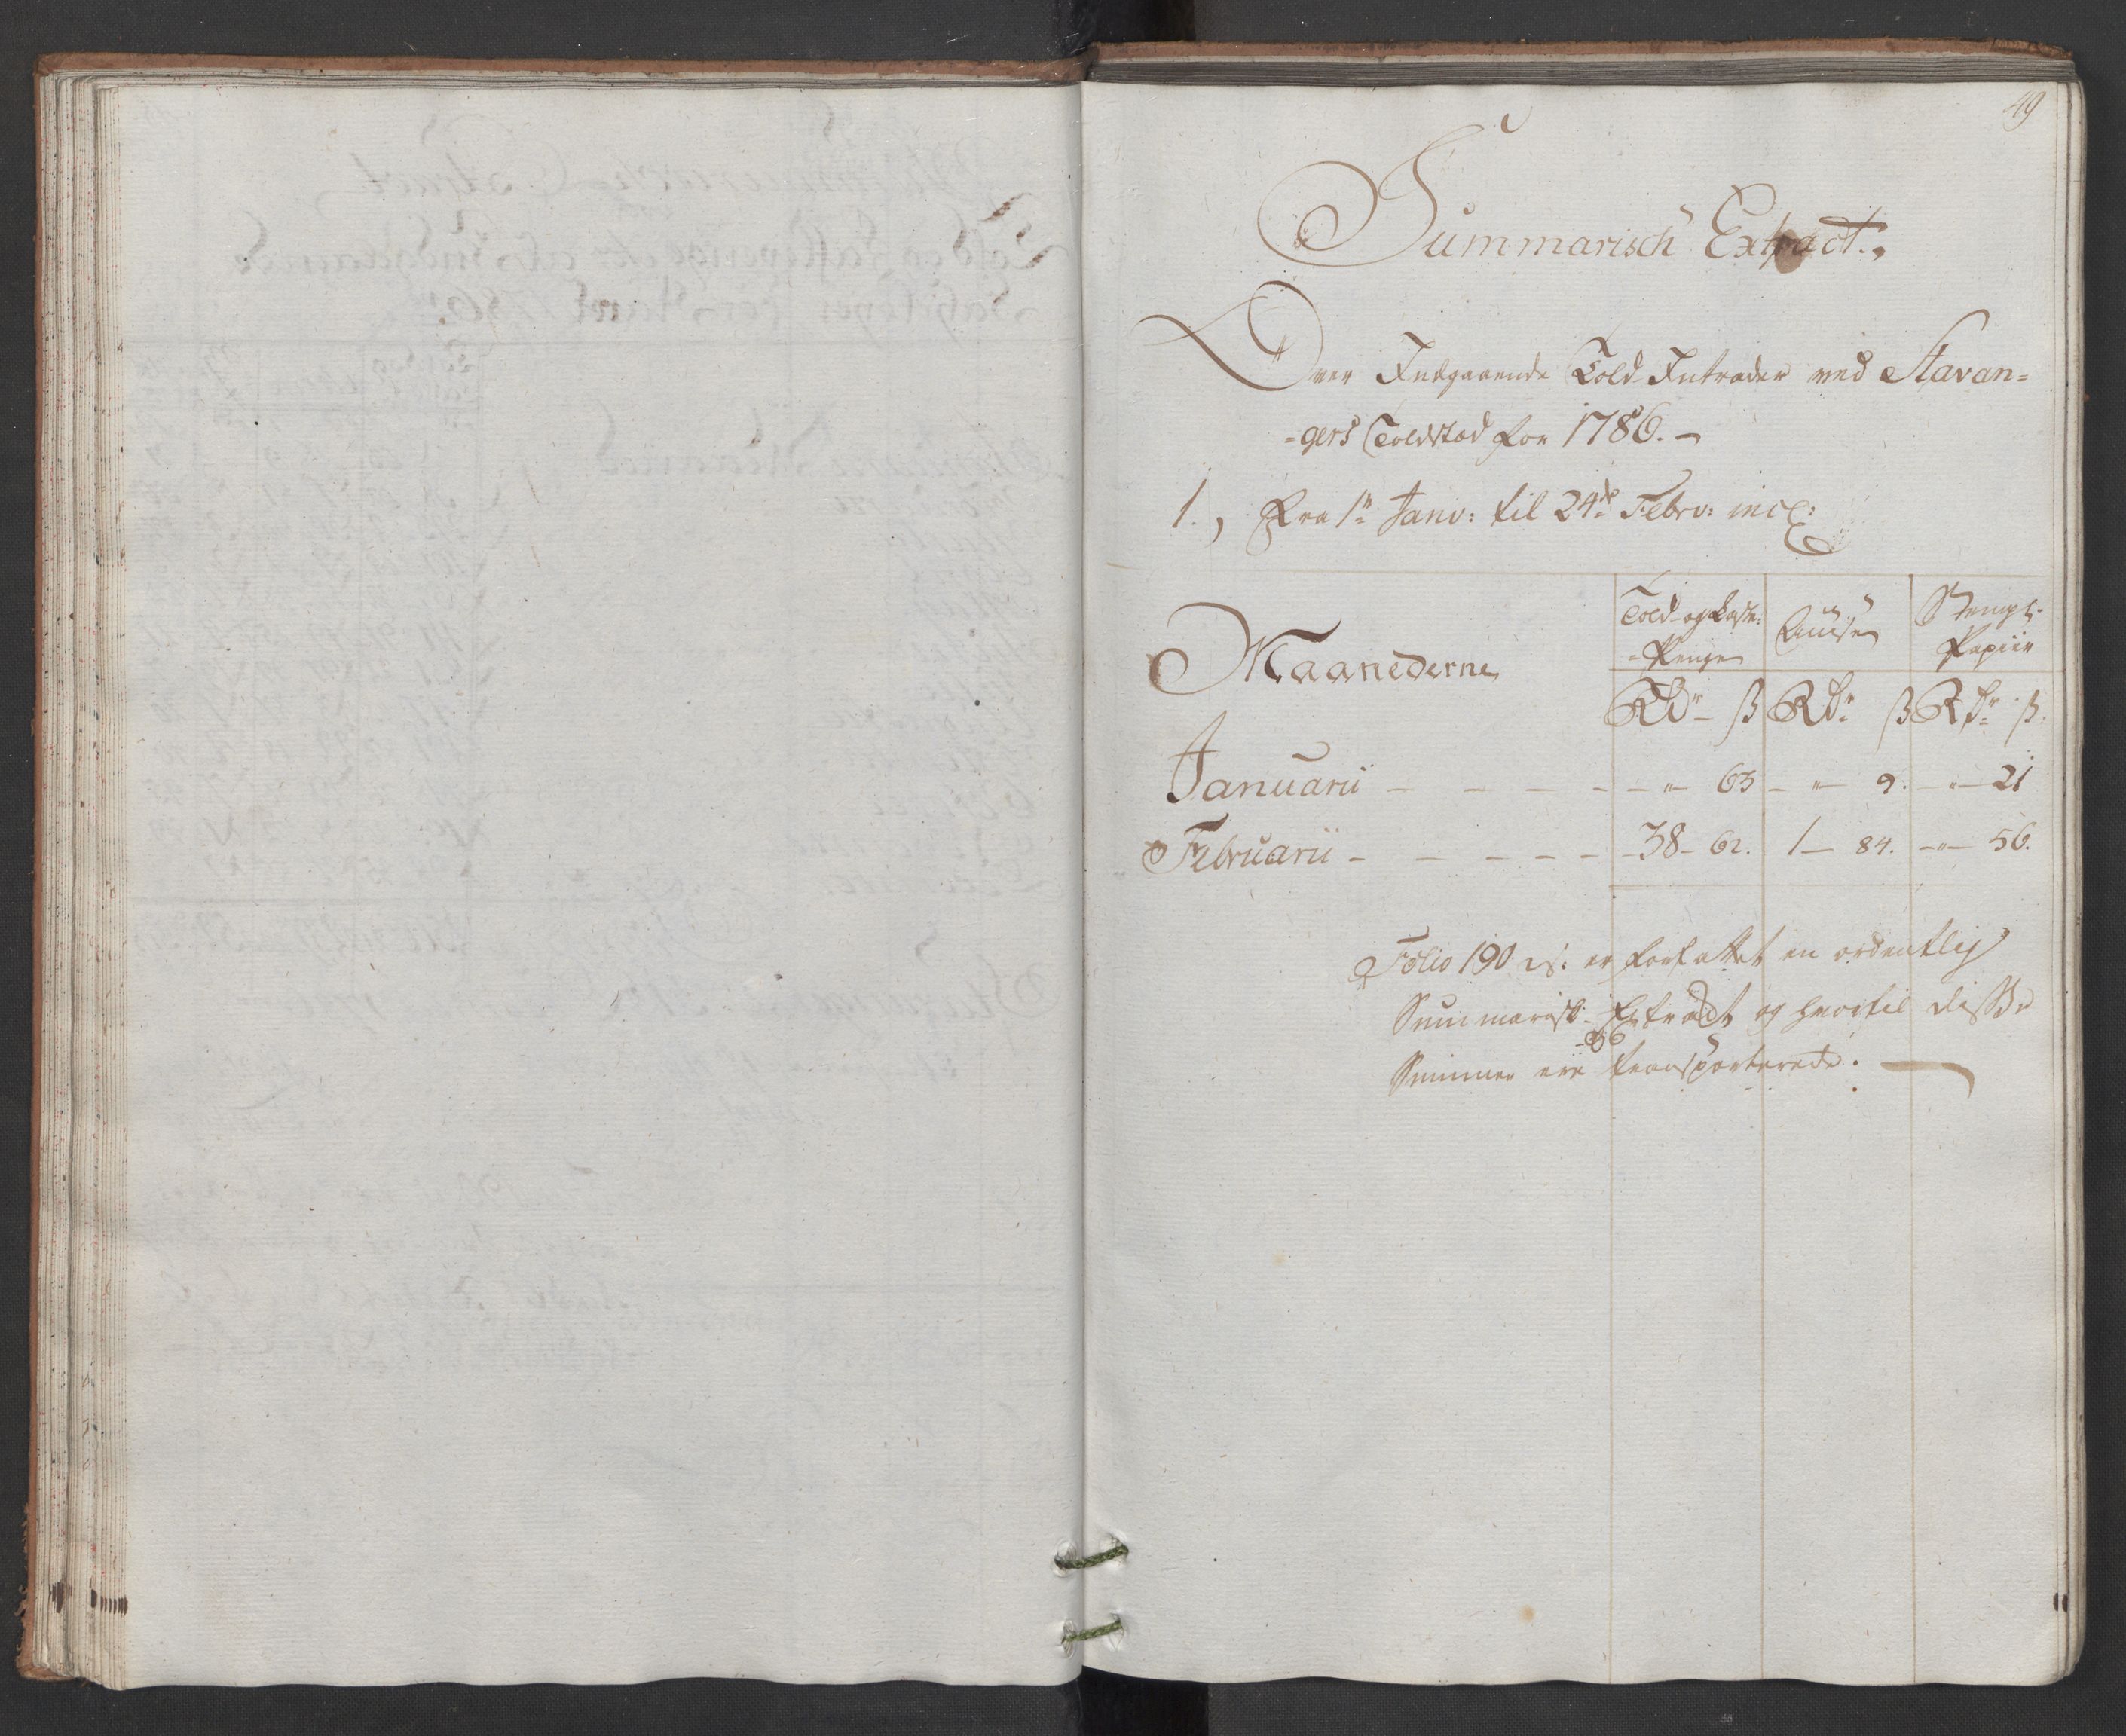 49
Summarisch Extract.,
Over Indgaaende Told-Intrader ved Stavan=
=gers Toldstæd for 1786. —
1., Fra 1n Janv: til 24de Febrv: incl:
Maanederne Told og Laste= =Penge Accise Stempl- Papiir
Rdr ß Rdr ß Rdr ß.
Januarii — — — — — " — 63 — " — 9. — " — 21
Februarii — — — — — 38 — 62. 1 — 84. — " — 56.
Folio 190 er forfattet en ordentlig
Summarisk Extract og hvortil disse
Summer ere transporterede. —